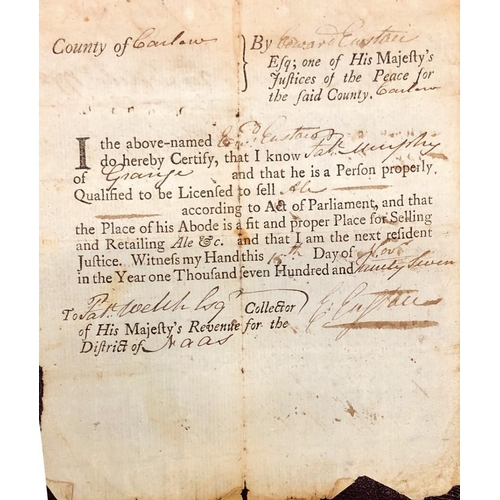 County of Carlow } By Edward Eustace
Esq; one of His Majesty's
Justices of the Peace for
the said County. Carlow
I the above-named Edwd. Eustace
do hereby Certify, that I know Patk. Murphy
of Grange and that he is a Person properly
Qualified to be Licensed to sell Ale
according to Act of Parliament, and that
the Place of his Abode is a fit and proper Place for Selling
and Retailing Ale &c. and that I am the next resident
Justice. Witness my Hand this Day of Novr.
in the Year One Thousand seven Hundred and ninety seven
To Patk. Welsh Esqr. Collector
of His Majesty's Revenue for the
District of Naas
E. Eustace